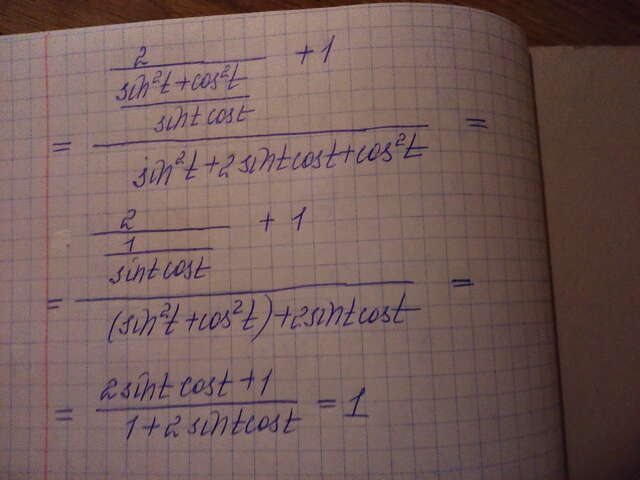 2 / ((sin²t + cos²t) / (sint cost)) + 1
= ―――――――――― =
sin²t + 2 sint cost + cos²t
2 / (1 / (sint cost)) + 1
= ―――――――――― =
(sin²t + cos²t) + 2 sint cost
= (2 sint cost + 1) / (1 + 2 sint cost) = 1